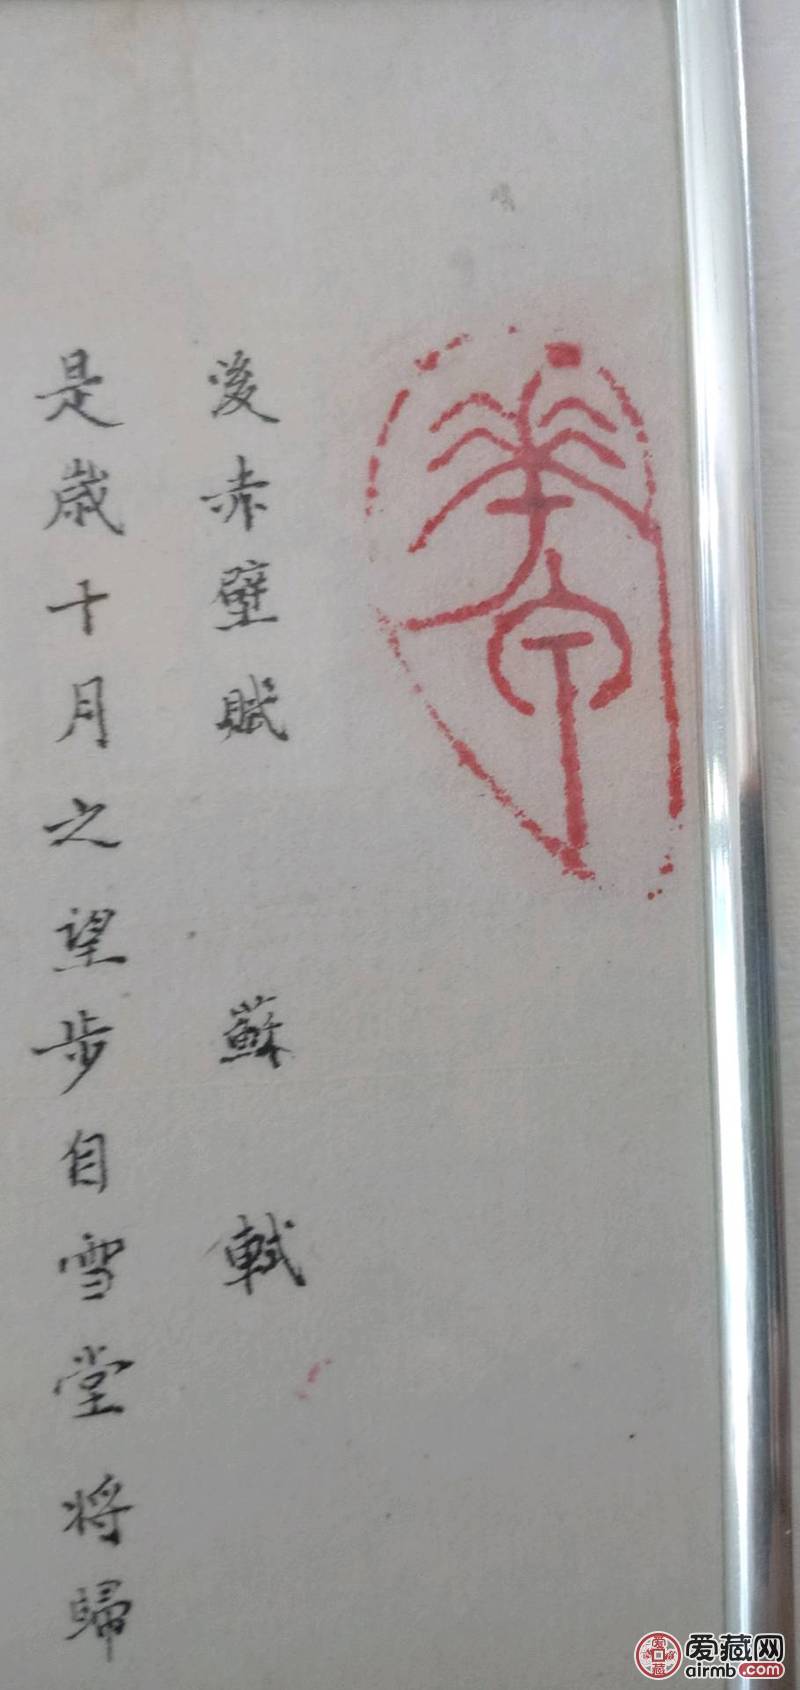 後赤壁賦 蘇軾
是歲十月之望步自雪堂將歸
爱藏网
airmb.com